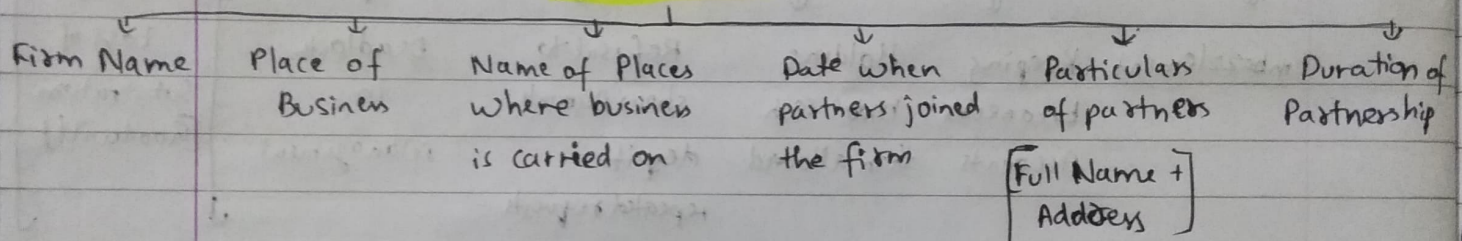 Firm Name
Place of
Business
Name of Places
where business
is carried on
Date when
partners joined
the firm
Particulars
of partners
[Full Name +
Address]
Duration of
Partnership